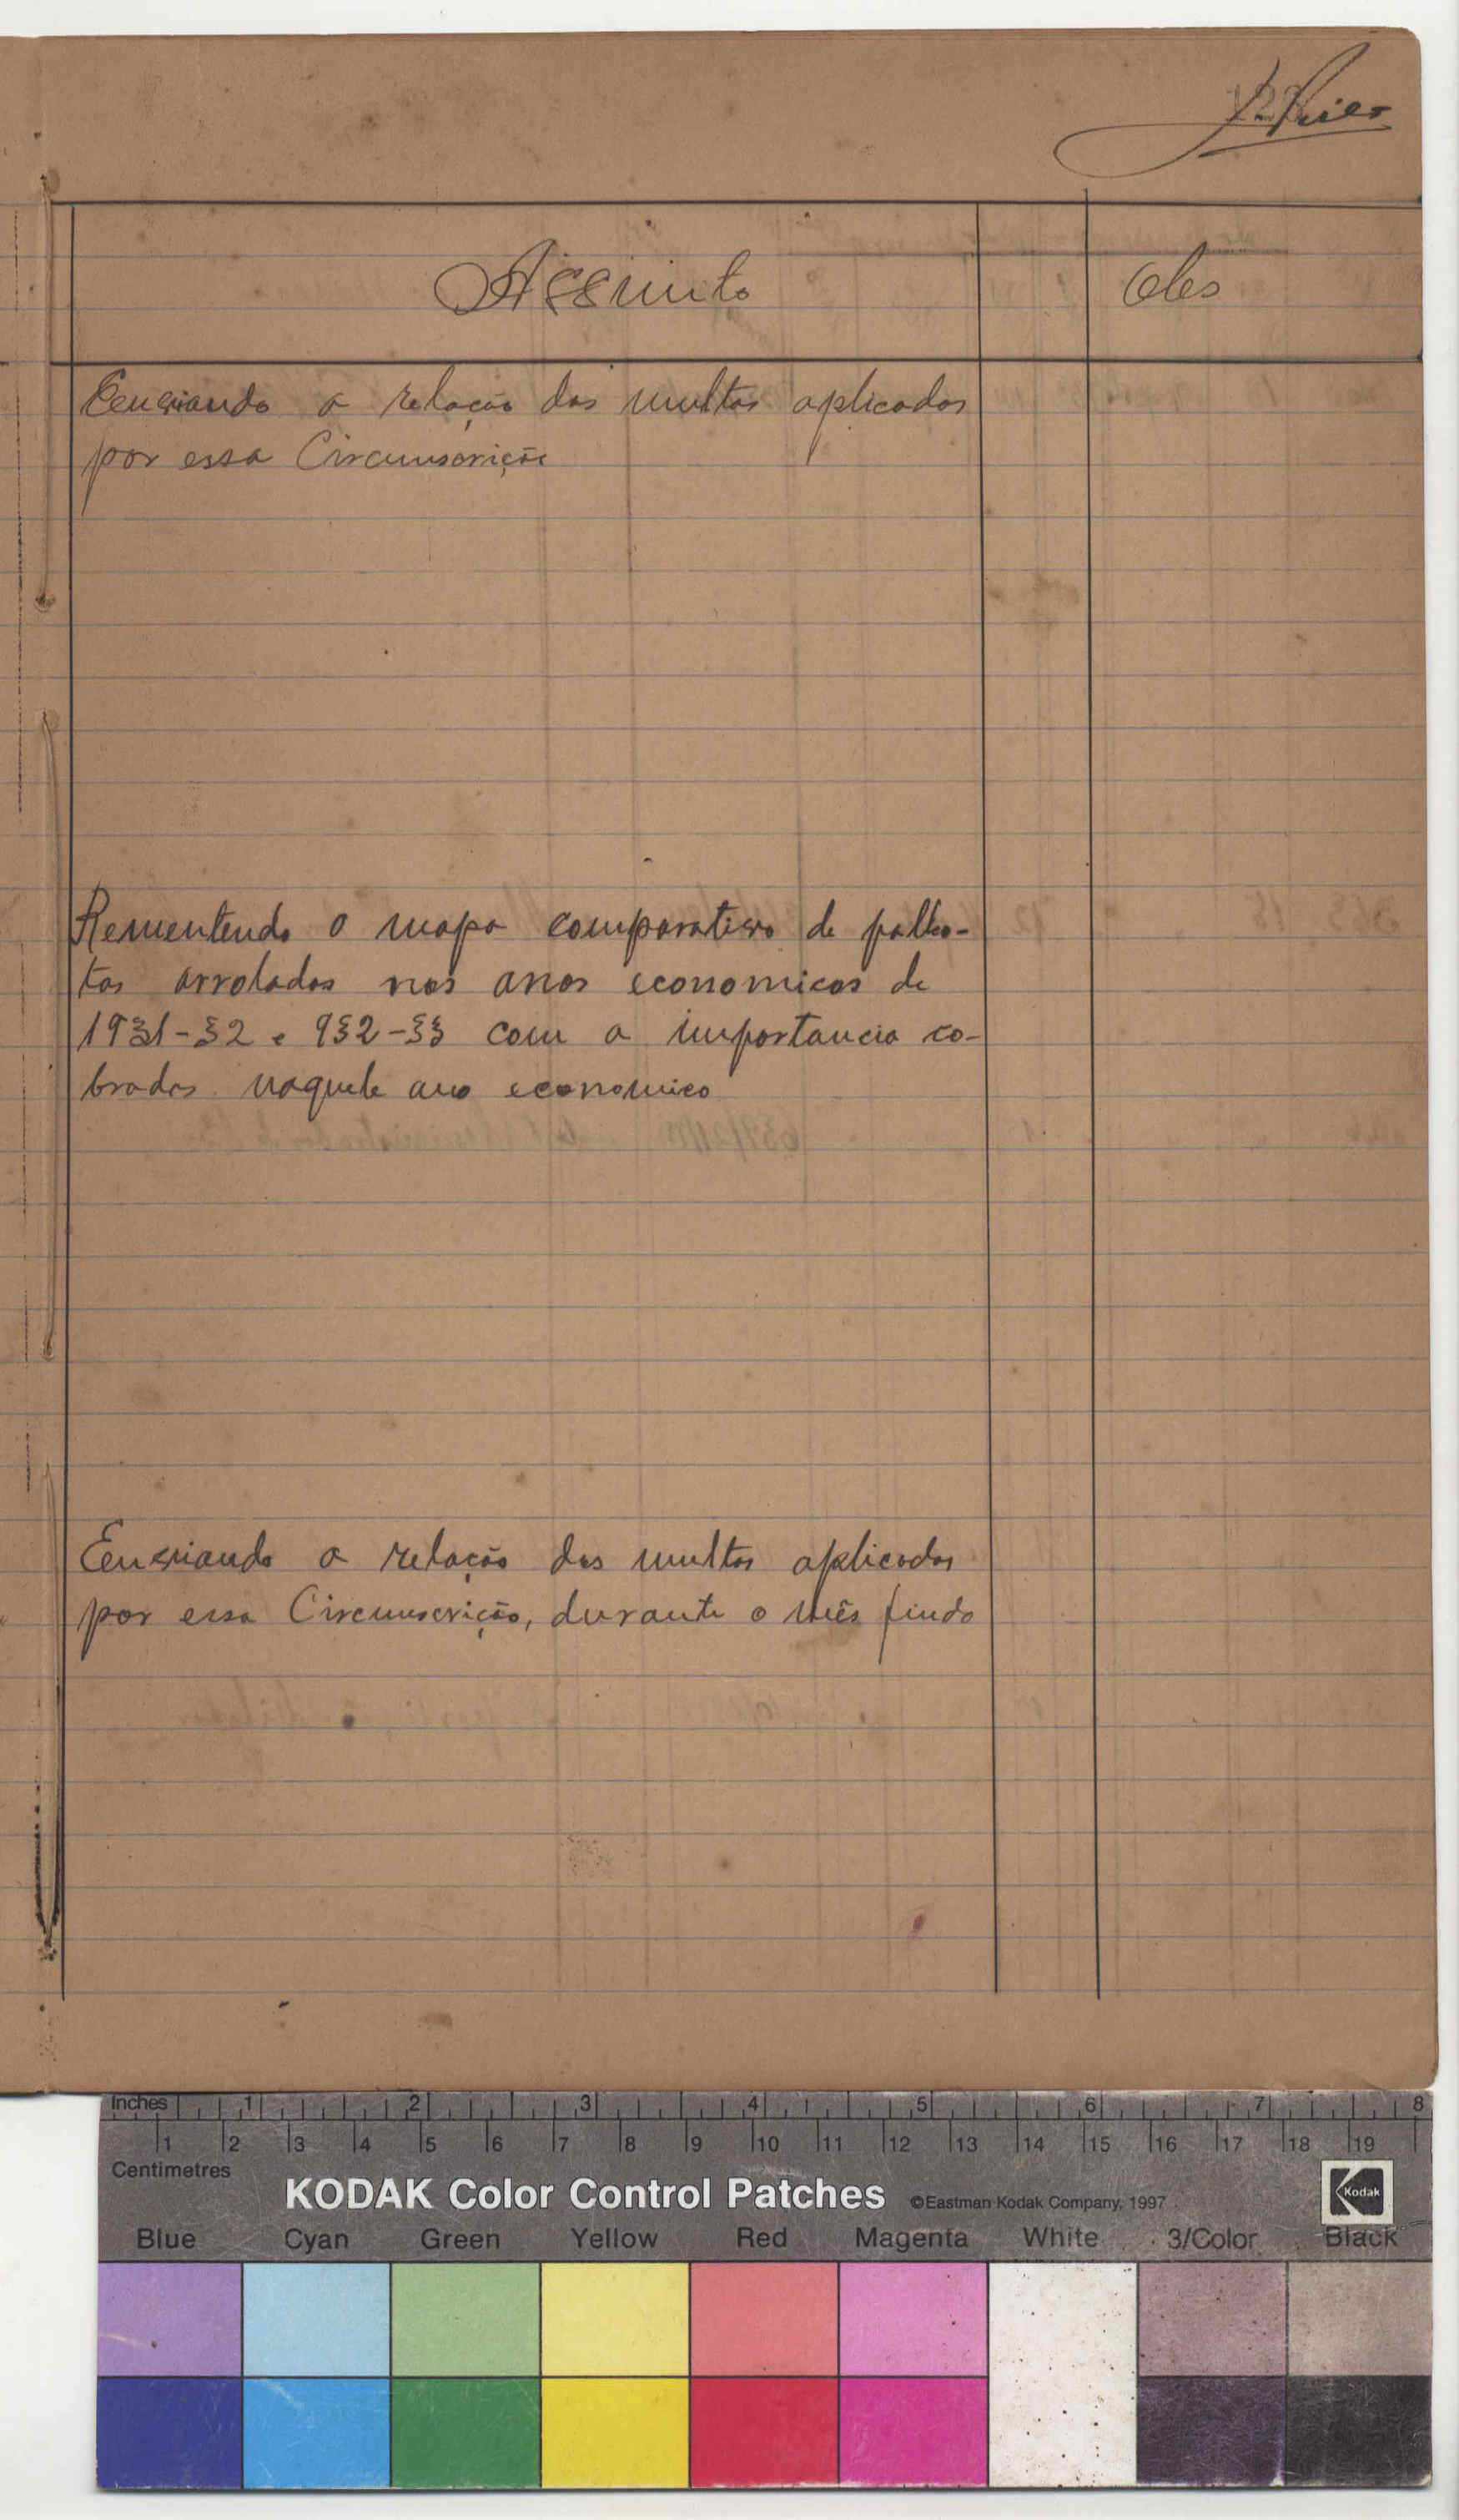 Assunto Obs
Eenviando a relação das multas aplicadas
por essa Circunscrição
Rementendo o mapa comparativo de palho-
tas arroladas nos anos economicos de
1931-32 e 932-33 com a importancia co-
brada naquele ano economico
Eenviando a relação das multas aplicadas
por essa Circunscrição, durante o mês findo
Inches 1 2 3 4 5 6 7 8
1 2 3 4 5 6 7 8 9 10 11 12 13 14 15 16 17 18 19
Centimetres
KODAK Color Control Patches ©Eastman Kodak Company, 1997 Kodak
Blue Cyan Green Yellow Red Magenta White 3/Color Black